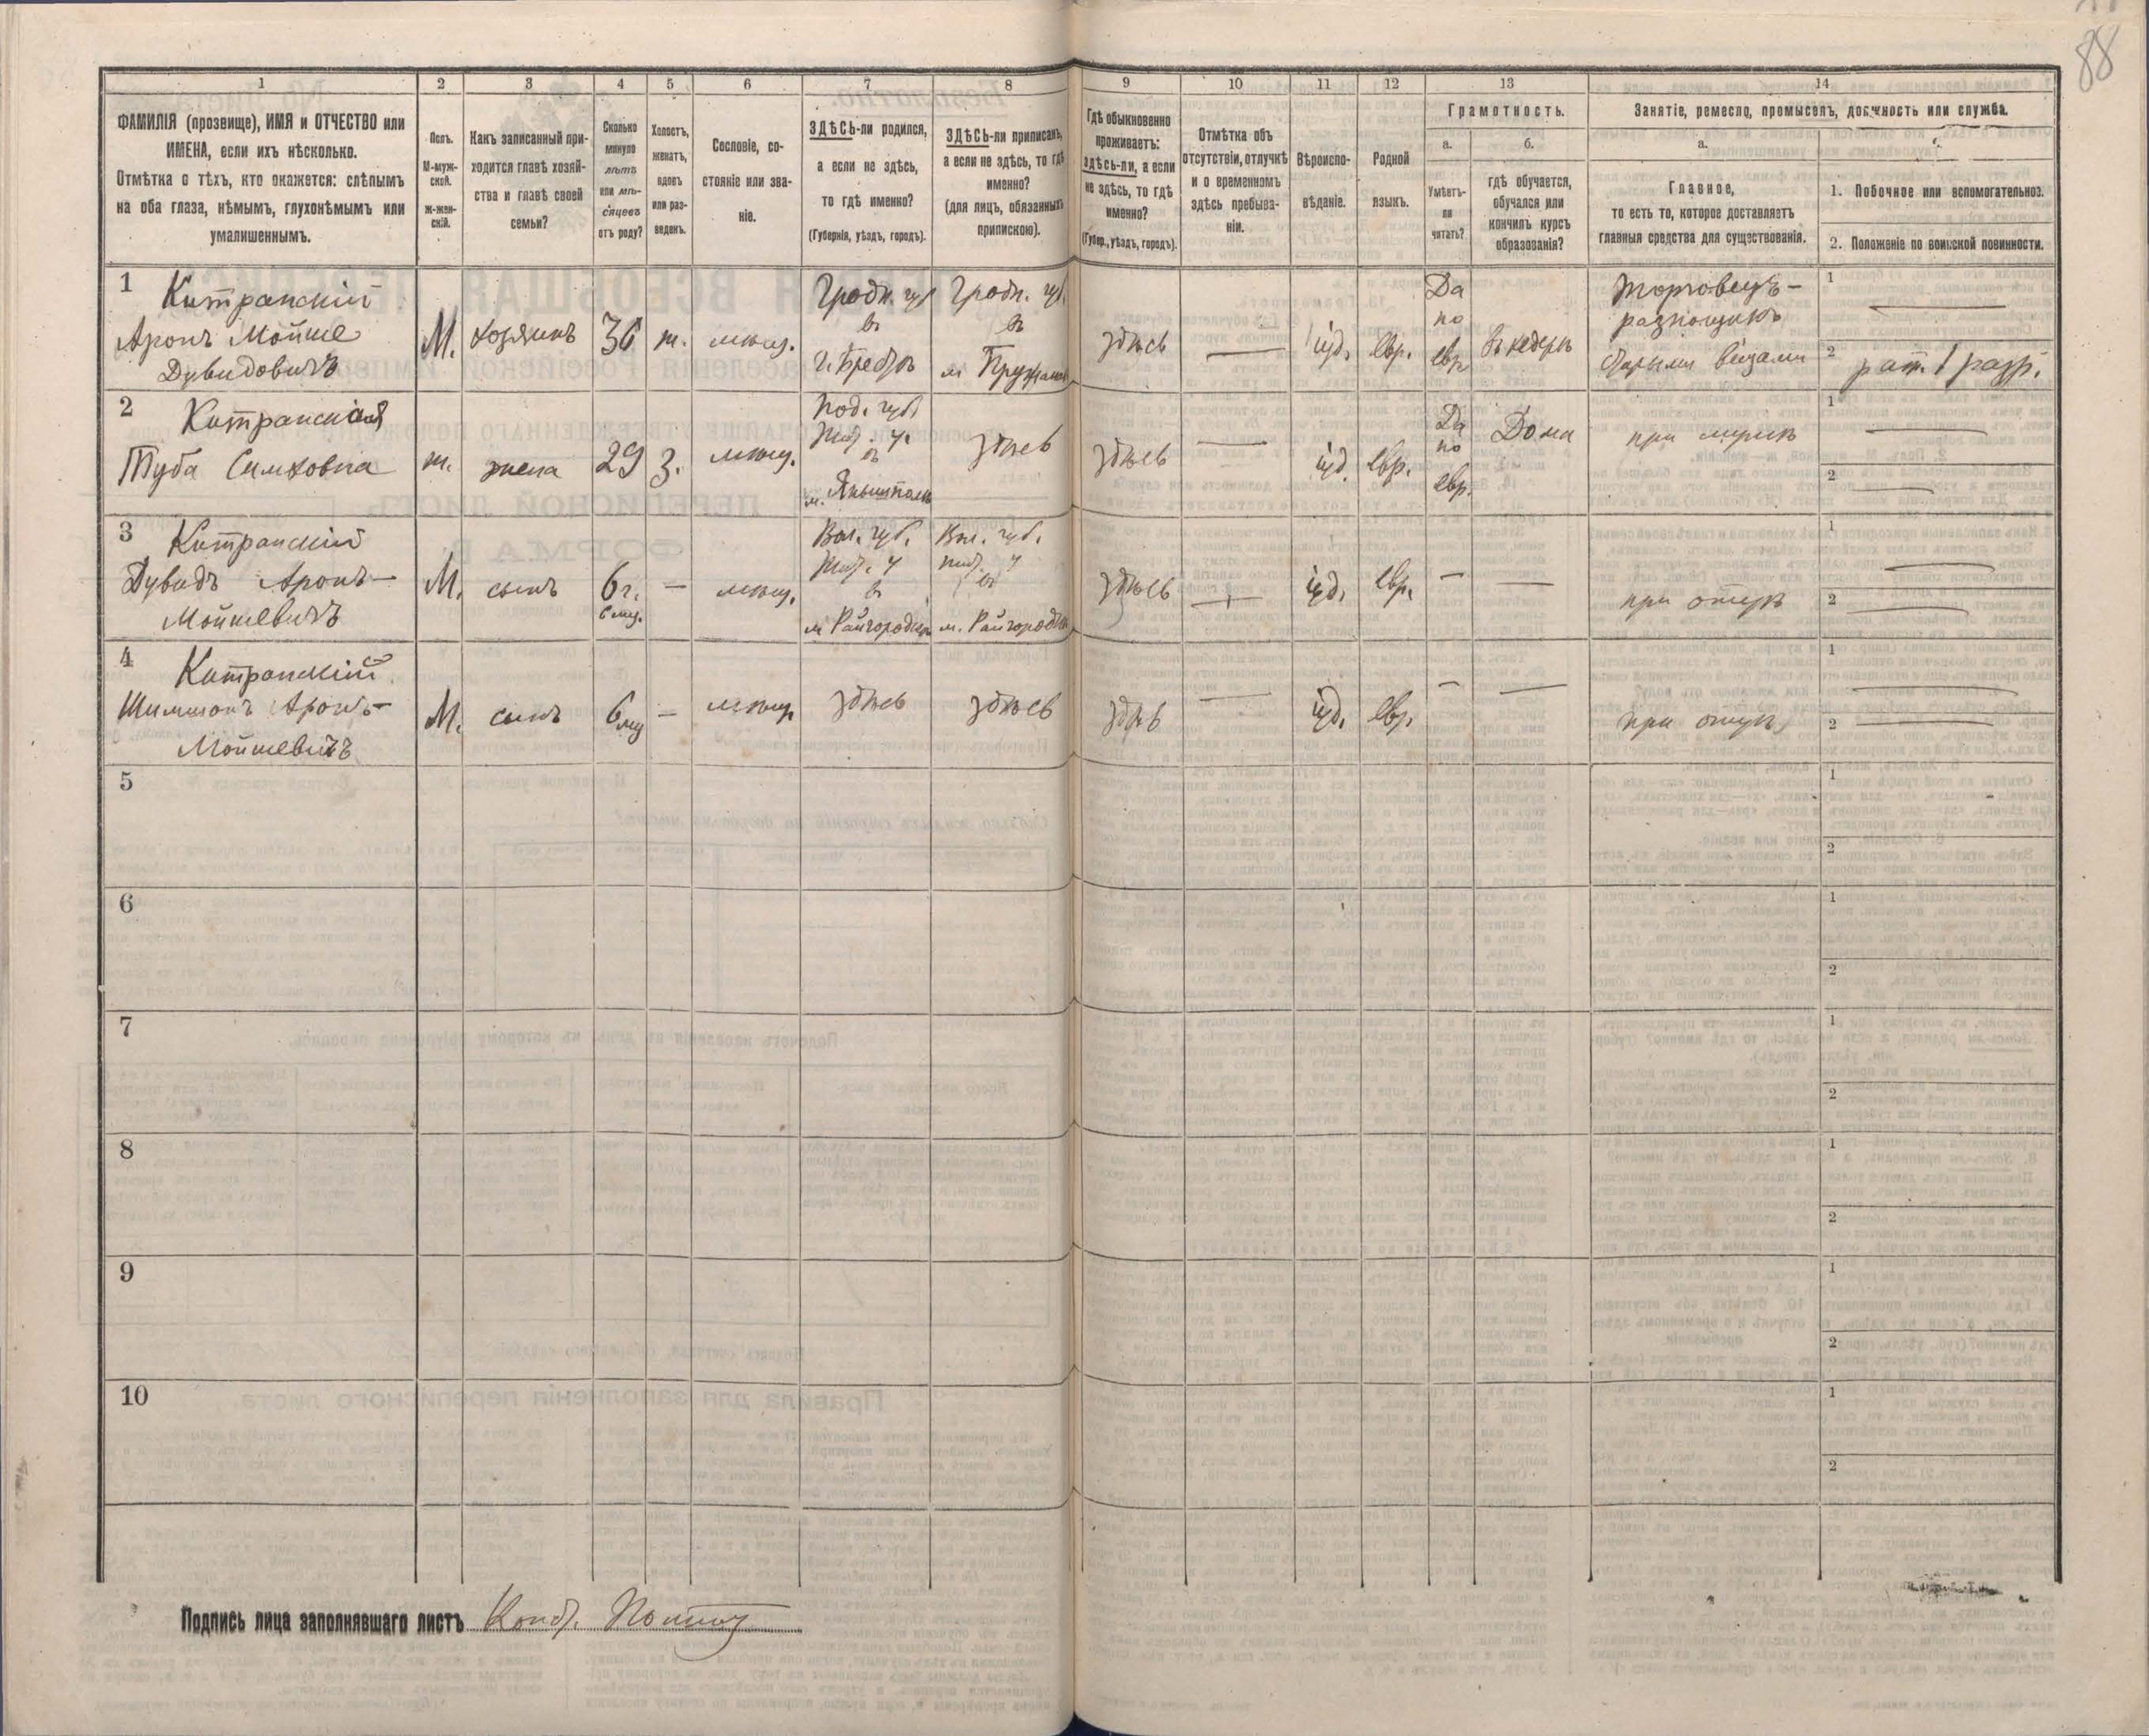 88
1 2 3 4 5 6 7 8 9 10 11 12 13 14
ФАМИЛІЯ (прозвище), ИМЯ и ОТЧЕСТВО или
ИМЕНА, если ихъ нѣсколько.
Отмѣтка о тѣхъ, кто окажется: слѣпымъ
на оба глаза, нѣмымъ, глухонѣмымъ или
умалишеннымъ.
Полъ.
М-муж-
ской.
ж-жен-
скій.
Какъ записанный при-
ходится главѣ хозяй-
ства и главѣ своей
семьи?
Сколько
минуло
лѣтъ
или мѣ-
сяцевъ
отъ роду?
Холостъ,
женатъ,
вдовъ
или раз-
веденъ.
Сословіе, со-
стояніе или зва-
ніе.
ЗДѢСЬ-ли родился,
а если не здѣсь,
то гдѣ именно?
(Губернія, уѣздъ, городъ).
ЗДѢСЬ-ли приписанъ,
а если не здѣсь, то гдѣ
именно?
(для лицъ, обязанныхъ
припискою).
Гдѣ обыкновенно
проживаетъ:
здѣсь-ли, а если
не здѣсь, то гдѣ
именно?
(Губер., уѣздъ, городъ).
Отмѣтка объ
отсутствіи, отлучкѣ
и о временномъ
здѣсь пребыва-
ніи.
Вѣроиспо-
вѣданіе.
Родной
языкъ.
Грамотность.
а.
Умѣетъ-
ли
читать?
б.
гдѣ обучается,
обучался или
кончилъ курсъ
образованія?
Занятіе, ремесло, промыселъ, должность или служба.
а.
Главное,
то есть то, которое доставляетъ
главныя средства для существованія.
1. Побочное или вспомогательное.
2. Положеніе по воинской повинности.
1
Китранскій
Аронъ Мойше
Дувидовичъ
М.
хозяинъ
36
ж.
мѣщ.
Гродн. губ
въ
г. Брестѣ
Гродн. губ.
въ
м Пружанах
здѣсь
—
іуд.
евр.
Да
по
евр
въ хедерѣ
Торговецъ-
разнощикъ
старыми вещами
1 —
2 рат. 1 разр.
2
Китранская
Туба Симховна
ж.
жена
29
З.
мѣщ.
Под. губ.
Жит. у.
въ
м.
здѣсь
здѣсь
—
іуд
евр.
Да
по
евр.
Дома
при мужѣ
1 —
2 —
3
Китранскій
Дувидъ Аронъ-
Мойшевичъ
М.
сынъ
6 г.
6 мѣс.
—
мѣщ.
Вол. губ.
Жит. у
въ
м Райгородкѣ
Вол. губ.
Жит. у
въ
м. Райгородкѣ
здѣсь
—
іуд.
евр.
—
—
при отцѣ
1 —
2 —
4
Китранскій
Шимшонъ Аронъ-
Мойшевичъ
М.
сынъ
6 мѣс
—
мѣщ.
здѣсь
здѣсь
здѣсь
—
іуд.
евр.
—
—
при отцѣ
1 —
2 —
5
1
2
6
1
2
7
1
2
8
1
2
9
1
2
10
1
2
Подпись лица заполнявшаго листъ